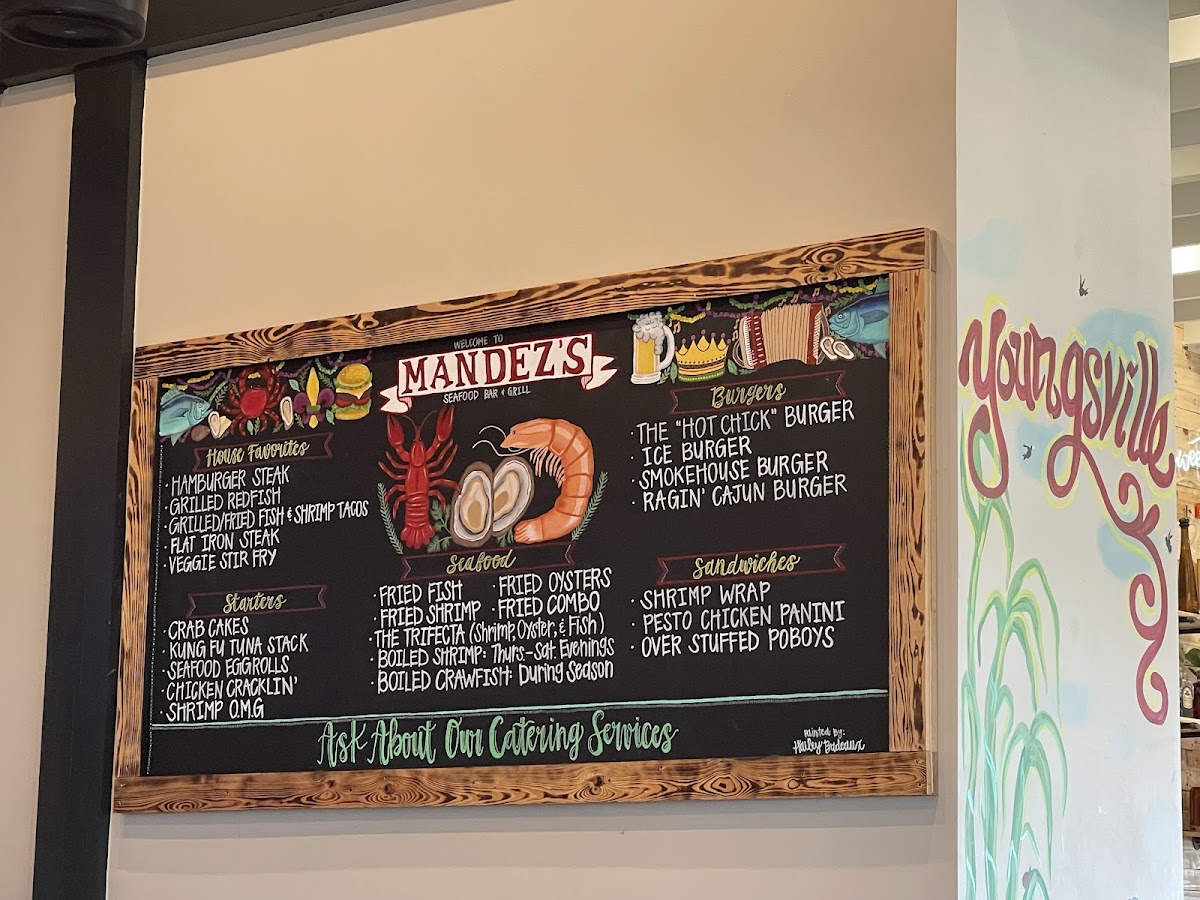 WELCOME TO
MANDEZ'S
SEAFOOD BAR & GRILL
House Favorites
· HAMBURGER STEAK
· GRILLED REDFISH
· GRILLED/FRIED FISH & SHRIMP TACOS
· FLAT IRON STEAK
· VEGGIE STIR FRY
Starters
· CRAB CAKES
· KUNG FU TUNA STACK
· SEAFOOD EGGROLLS
· CHICKEN CRACKLIN'
· SHRIMP O.M.G
Seafood
· FRIED FISH · FRIED OYSTERS
· FRIED SHRIMP · FRIED COMBO
· THE TRIFECTA (Shrimp, Oyster, & Fish)
· BOILED SHRIMP: Thurs-Sat. Evenings
· BOILED CRAWFISH: During Season
Burgers
· THE "HOT CHICK" BURGER
· ICE BURGER
· SMOKEHOUSE BURGER
· RAGIN' CAJUN BURGER
Sandwiches
· SHRIMP WRAP
· PESTO CHICKEN PANINI
· OVER STUFFED POBOYS
Ask About Our Catering Services
Painted By:
Youngsville